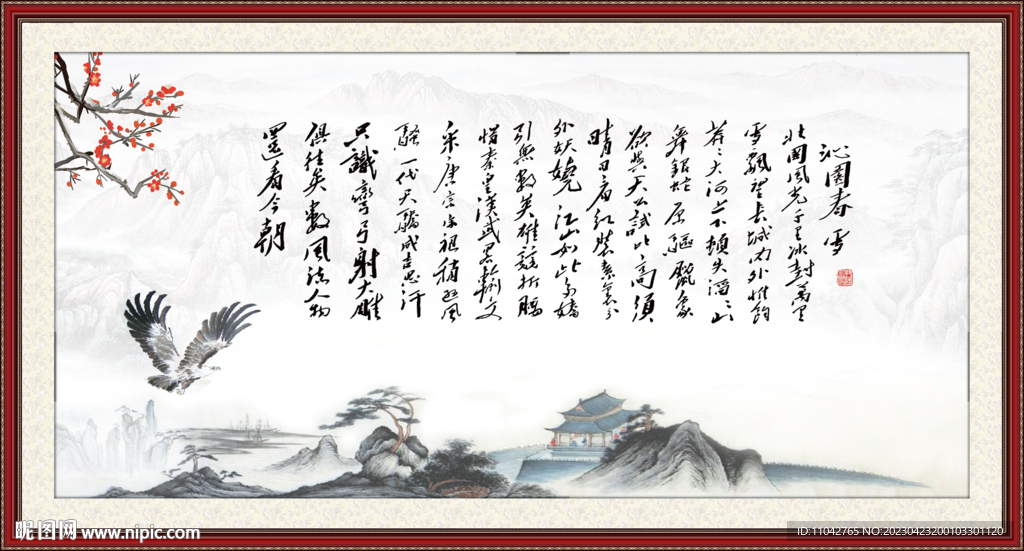 沁園春 雪
北国风光千里冰封万里
雪飘望长城内外惟馀
莽〻大河上下顿失滔〻山
舞银蛇原驱腊象
欲與天公試比高須
晴日看红装素裹分
外妖嬈江山如此多嬌
引無數英雄競折腰
惜秦皇漢武略輸文
采唐宗宋祖稍逊风
騷一代天驕成吉思汗
只識彎弓射大雕
俱往矣數风流人物
還看今朝
昵图网 www.nipic.com
ID:11042765 NO:20230423200103301120